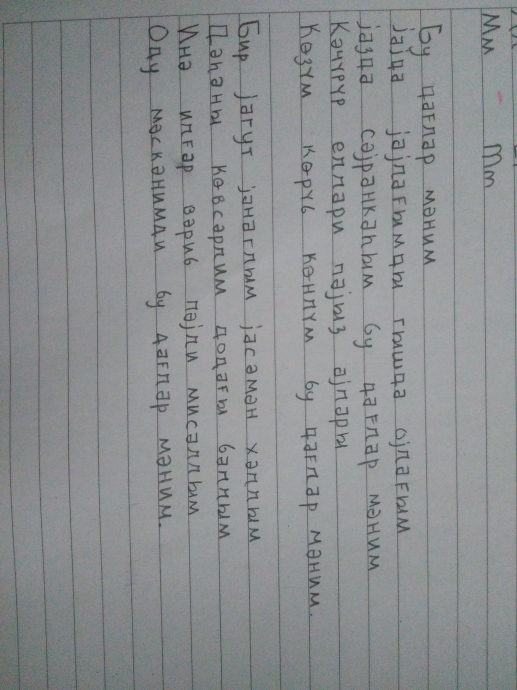 Мм - Мт
Бу дағлар мәним
јајда јајлағымды гышда ојлағым
јазда сәјранкаһым бу дағлар мәним
Кәчүрүр еллари пајыз ајлары
Көзүм көрүб көнлүм бу дағлар мәним.
Бир јагут јанаглым јасәмән халлым
Даһаны көвсәрлим додағы баллым
Инә илгар вәриб ләјли мисаллым
Оду мәскәнимди бу дағлар мәним.